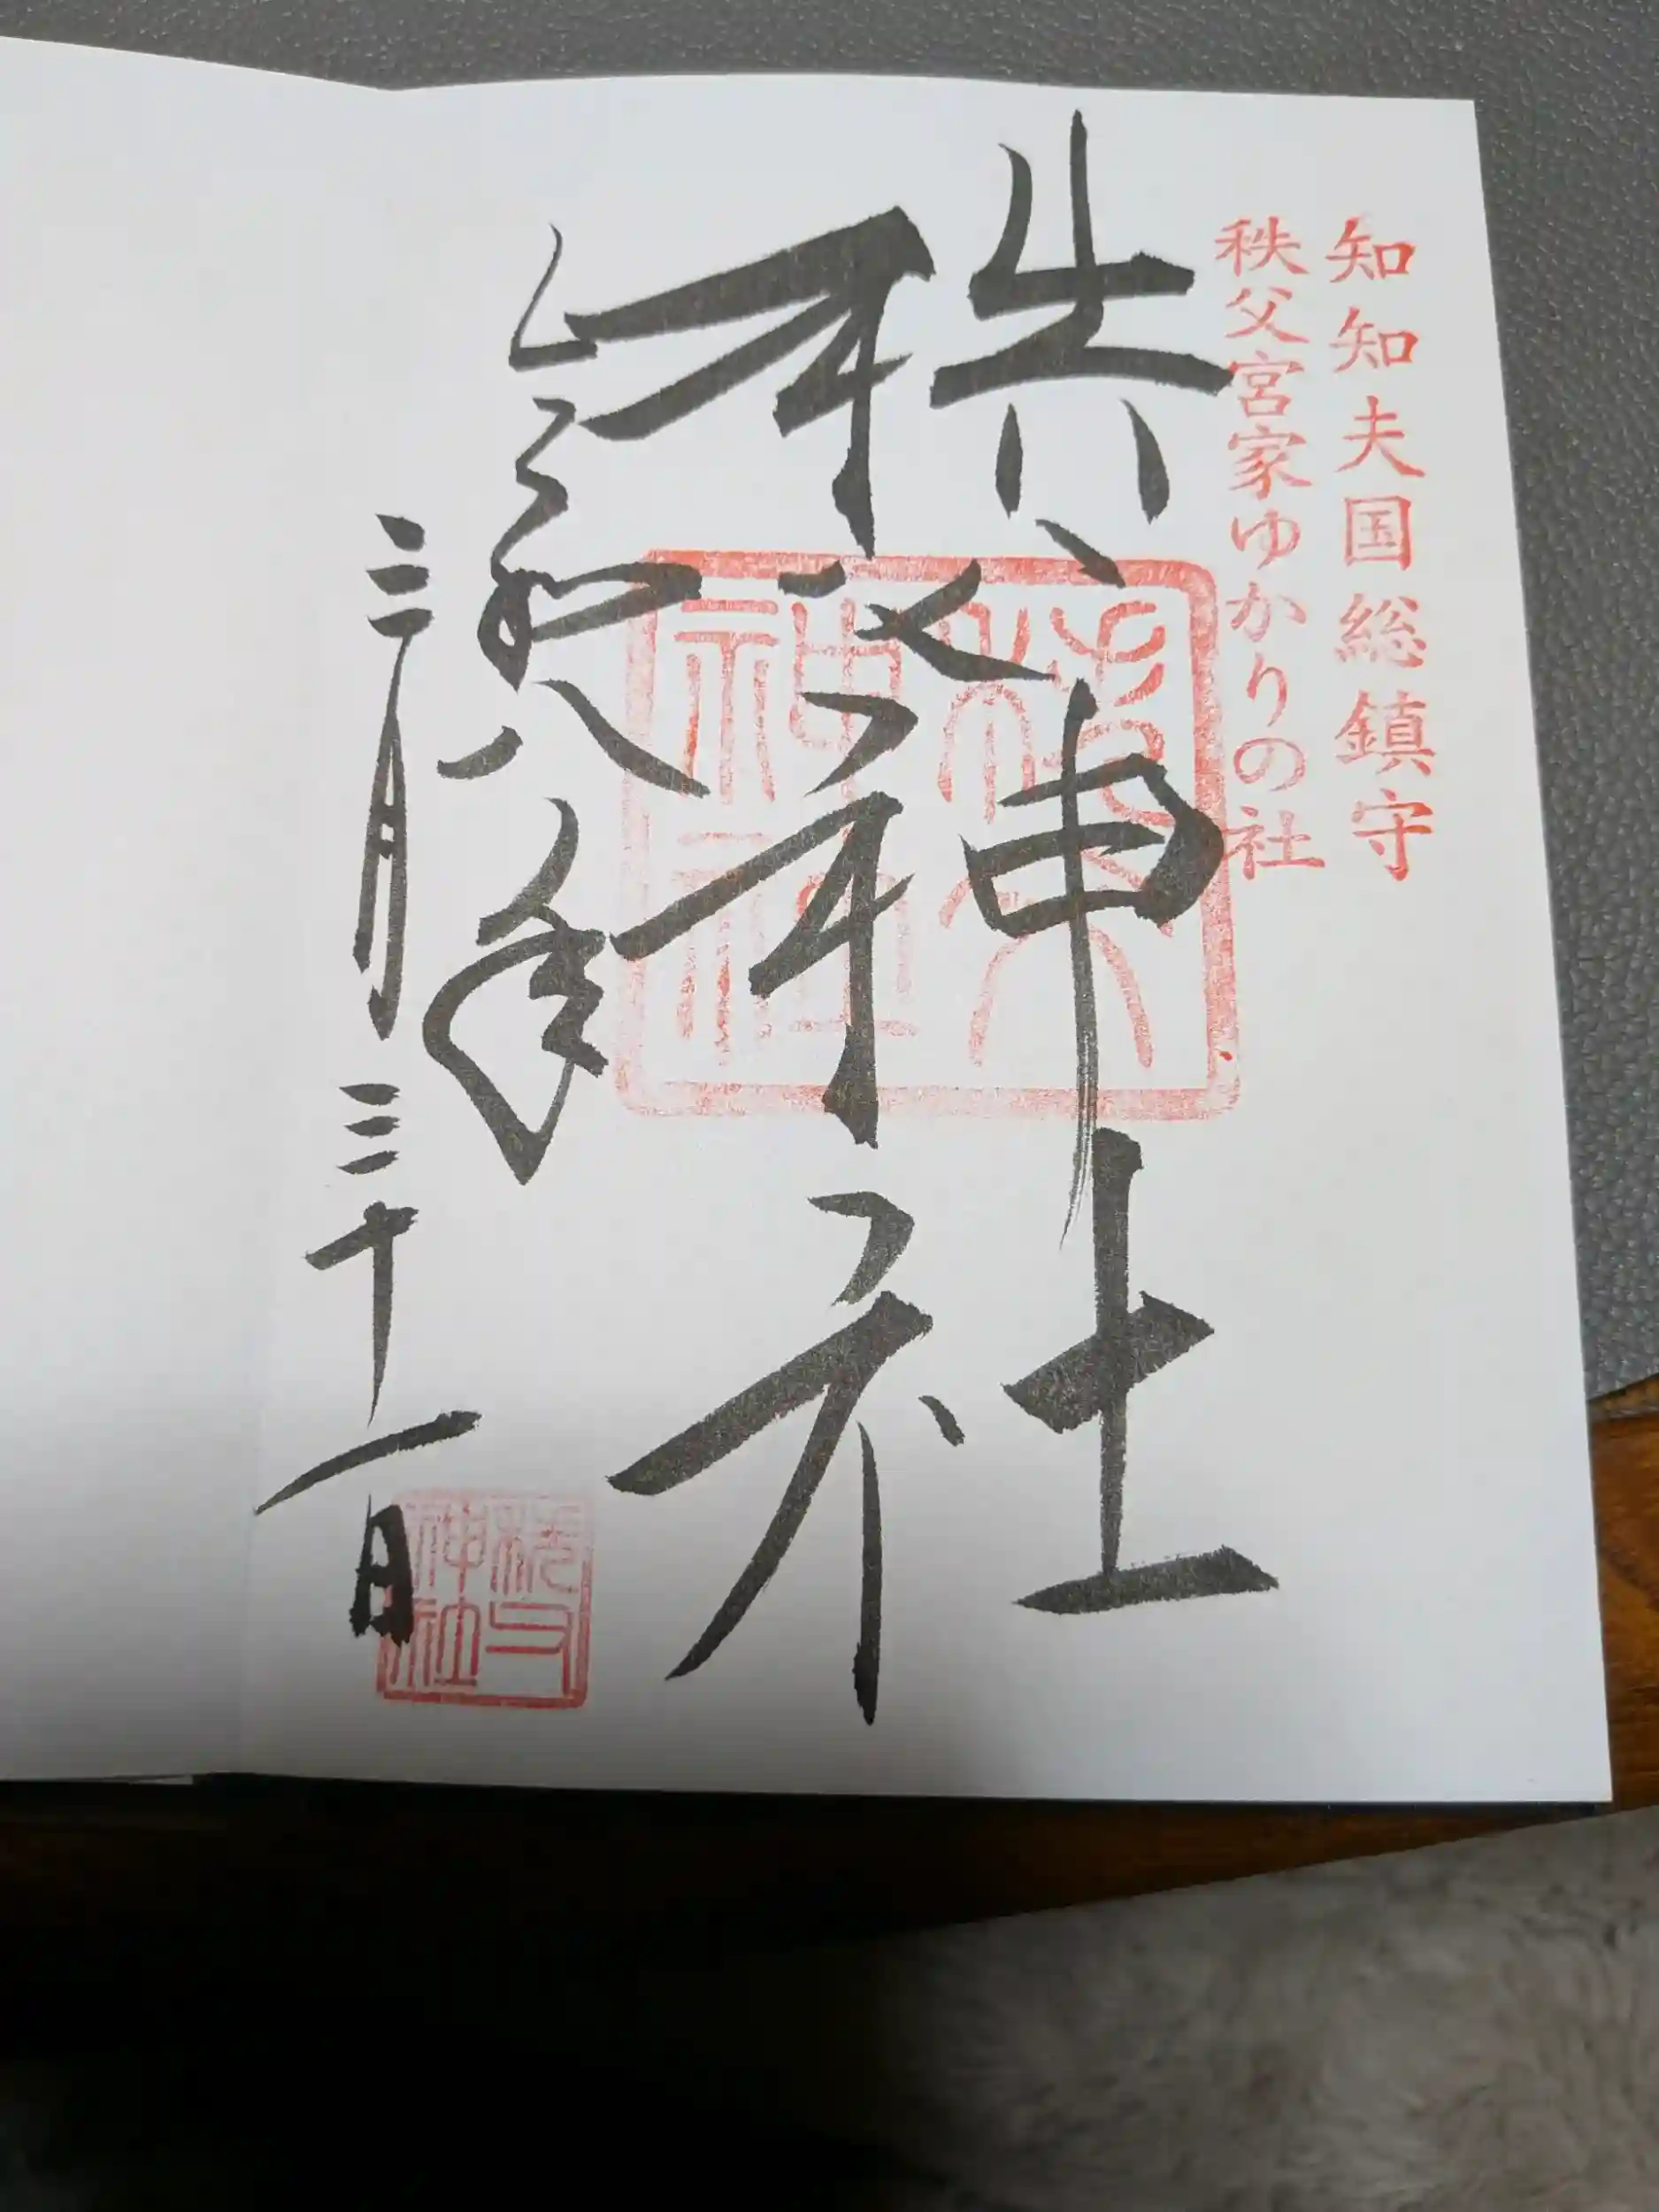 知知夫国総鎮守
秩父宮家ゆかりの社
秩父神社
令和八年
三月三十一日
秩父神社
秩父神社